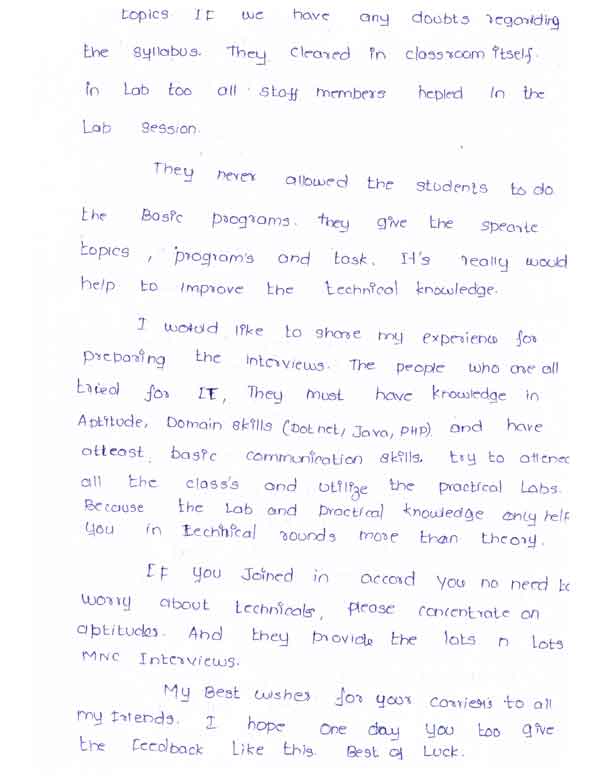 topics If we have any doubts regarding
the syllabus. They cleared in classroom itself.
in Lab too all staff members hepled in the
Lab session.
They never allowed the students to do
the Basic programs. they give the spearte
topics, program's and task. It's really would
help to improve the technical knowledge.
I would like to share my experience for
preparing the interviews. The people who are all
tried for IT, They must have knowledge in
Aptitude, Domain skills (Dot net, Java, PHP) and have
atleast basic communication skills. try to attened
all the class's and utilize the practical Labs.
Because the Lab and practical knowledge only help
you in technical rounds more than theory.
If you Joined in accord you no need to
worry about technicals, please concentrate on
aptitudes. And they provide the lots n lots
MNC Interviews.
My Best wishes for your carriers to all
my friends. I hope one day you too give
the feedback Like this. Best of Luck.